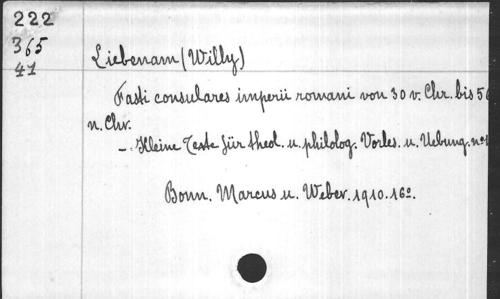 222
365
41
Liebenam (Willy)
Fasti consulares imperii romani von 30 v. Chr. bis 56
n. Chr.
-. Kleine Texte für theol. u. philolog. Vorles. u. Uebung. n°
Bonn. Marcus u. Weber. 1910. 16º.